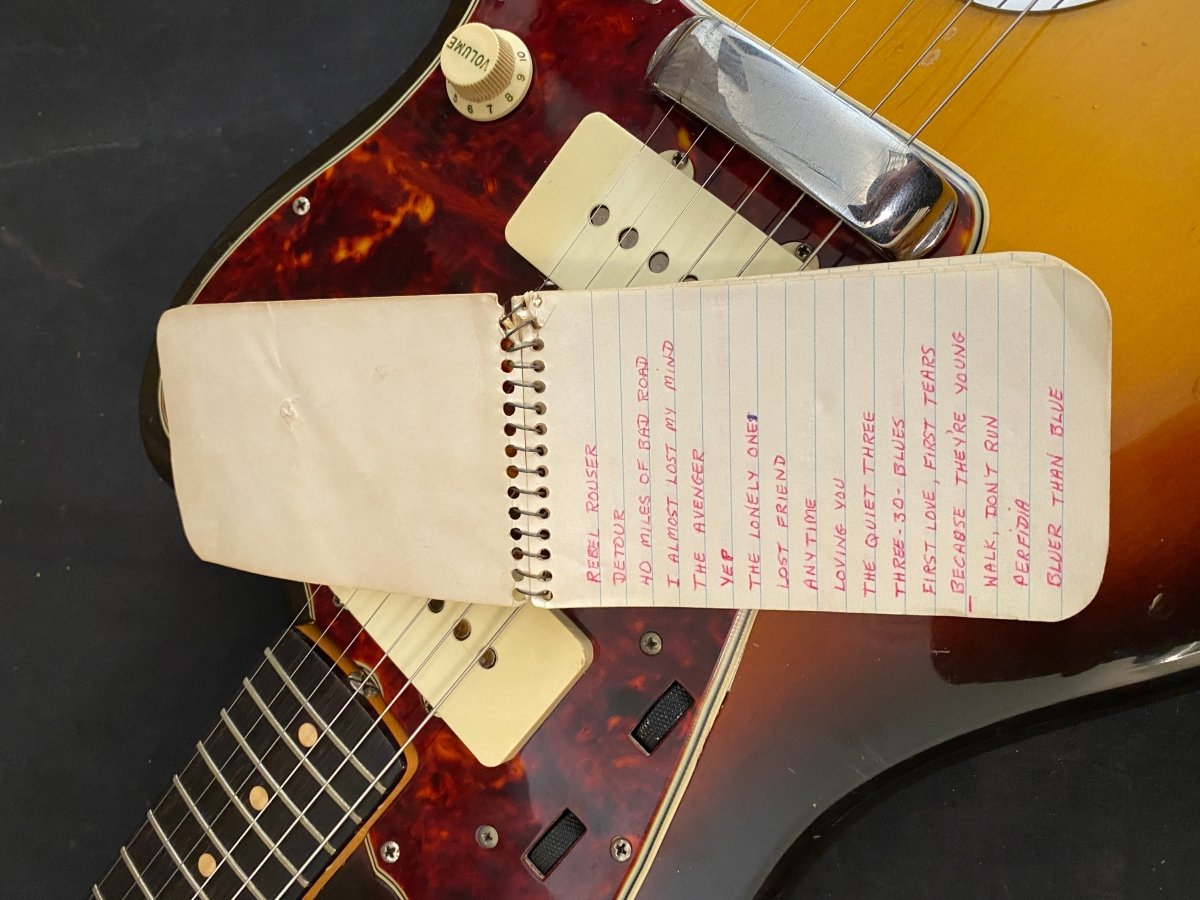 VOLUME
5 6 7 8 9 10
REBEL ROUSER
DETOUR
40 MILES OF BAD ROAD
I ALMOST LOST MY MIND
THE AVENGER
YEP
THE LONELY ONE
LOST FRIEND
ANYTIME
LOVING YOU
THE QUIET THREE
THREE-30-BLUES
FIRST LOVE, FIRST TEARS
BECAUSE THEY'RE YOUNG
WALK, DON'T RUN
PERFIDIA
BLUER THAN BLUE